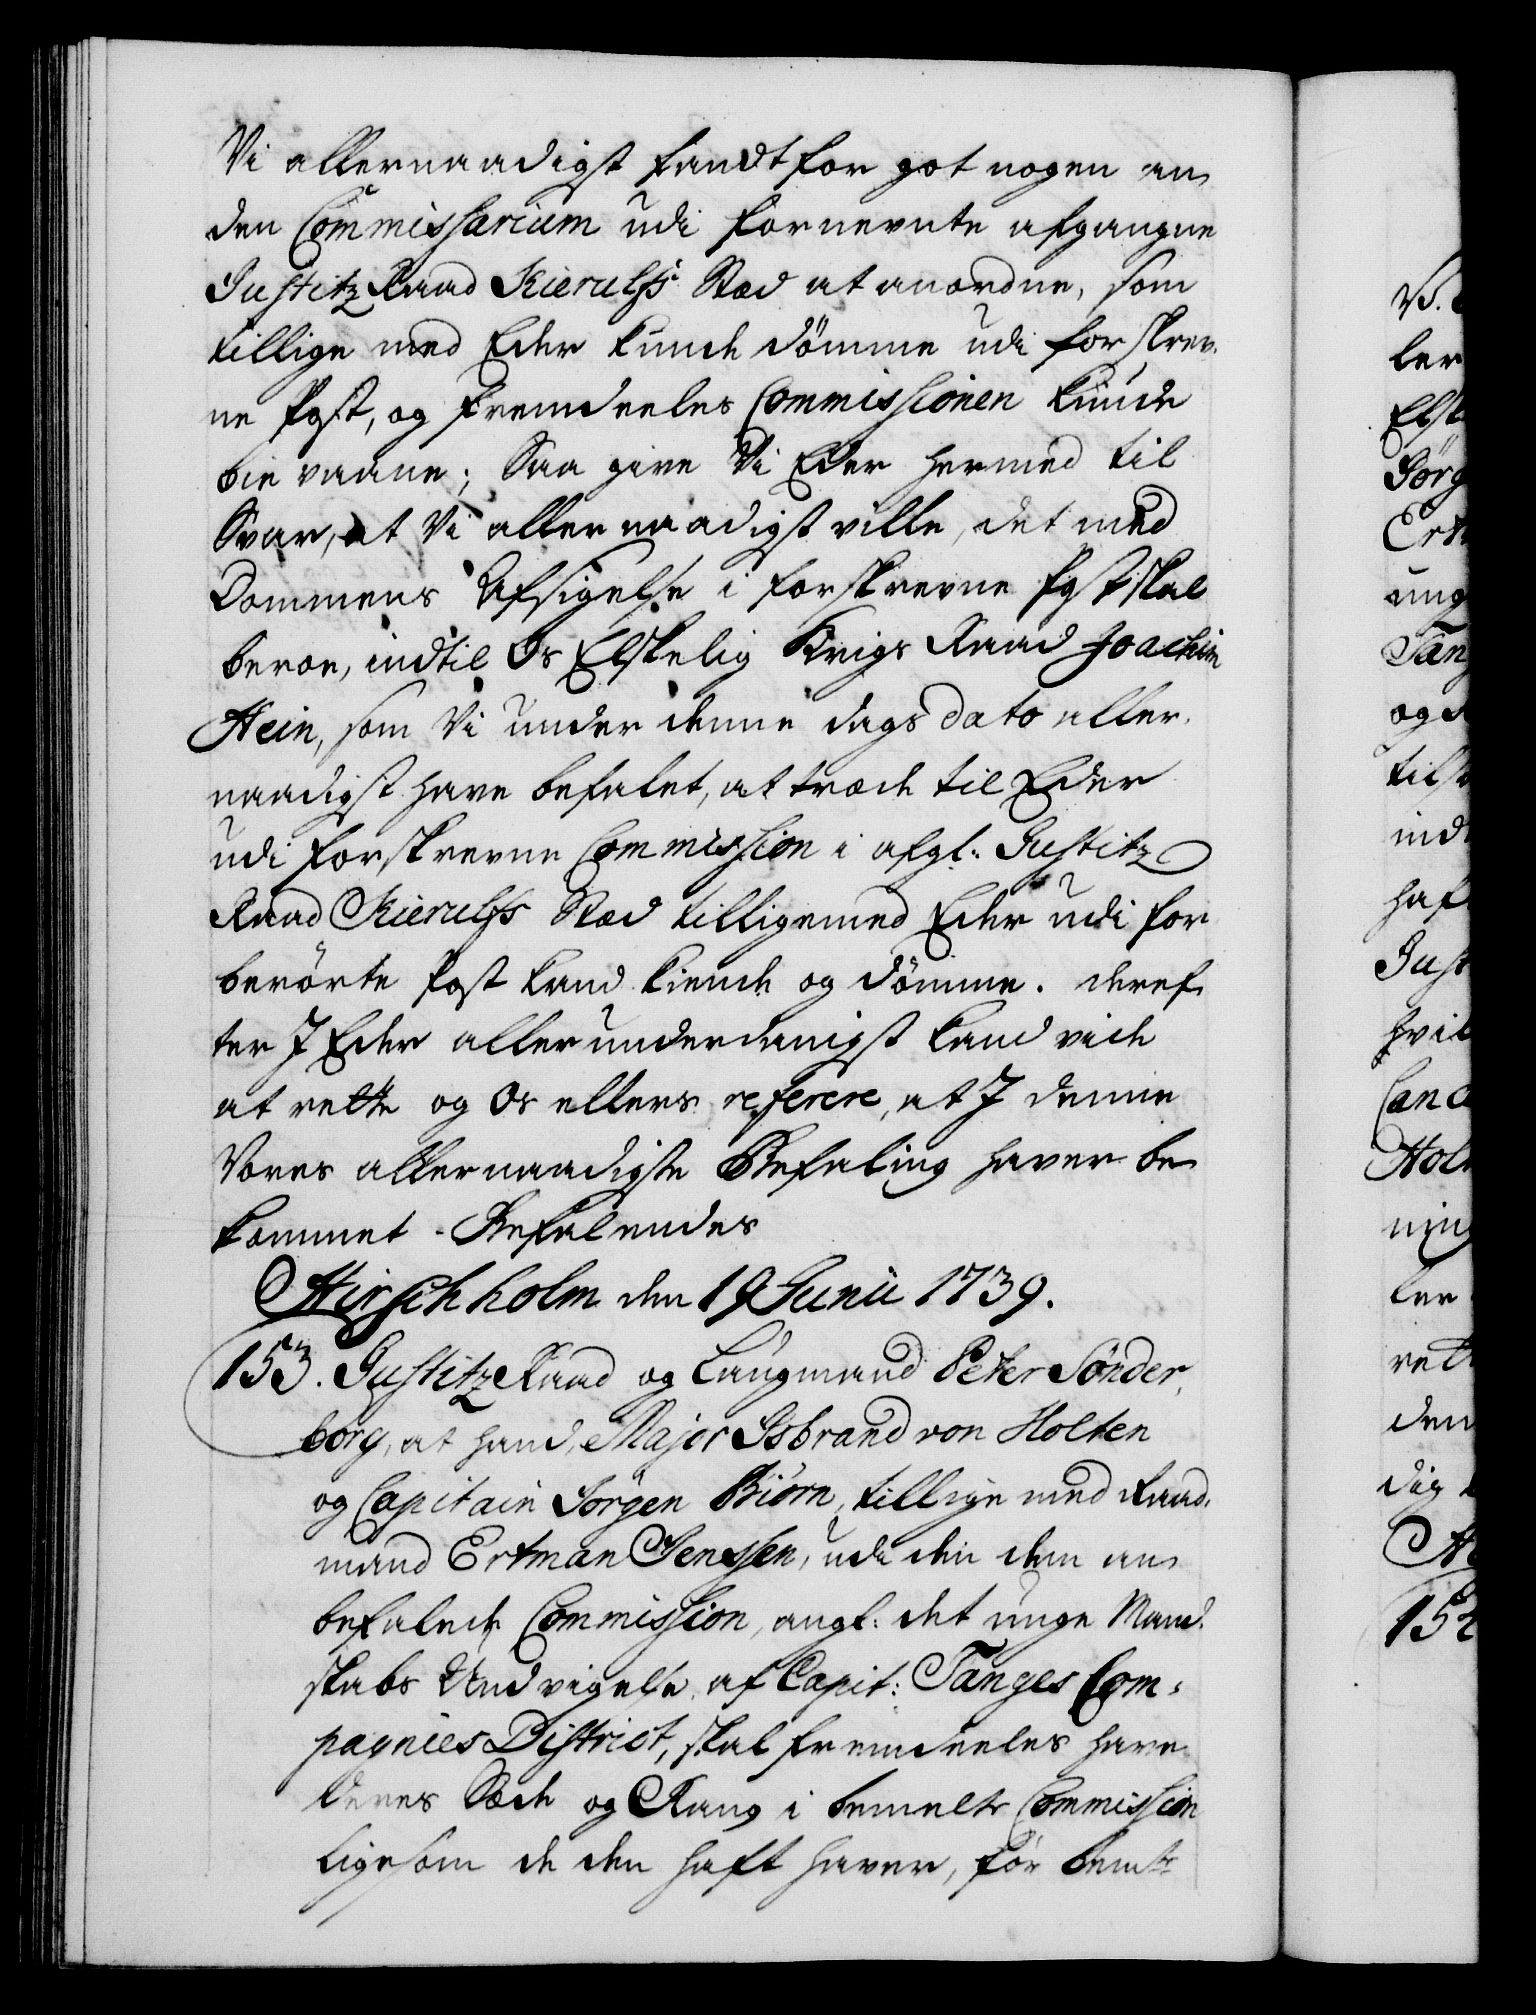 Vi allernaadigst fandt for got nogen an
den Commissarium udi fornevnte afgangne
Justitz Raad Kierulfs Stæd at anordne, som
tillige med Eder kunde dömme udi forskrev,
ne Post, og fremdeeles Commissionen kunde
bie vaane; Saa give Vi Eder hermed til
Svar, at Vi allernaadigst ville, det med
Dommens Afsigelse i forskrevne Post skal
beroe, indtil Os Elskelig Krigs Raad Joachim
Hein, som Vi under denne dags dato aller,
naadigst have befalet, at træde til Eder
udi forskrevne Commission i afgl: Justitz
Raad Kierulfs Stæd tilligemed Eder udi for
berörte Post kand kiende og dömme. deref,
ter J Eder allerunderdanigst kand vide
at rette og Os ellers referere, at J denne
Vores allernaadigste Befaling haver be
kommet. Befalendes
Hirschholm den 19 Junii 1739.
153. Justitz Raad og Laugmand Peter Sönder,
borg, at hand, Major Isbrand von Holten
og Capitain Jörgen Biörn, tillige med Raad,
mand Ertman Jenssen, udi den dem an
befalede Commission, angl: det unge Mand,
skabs Undvigelse af Capit: Tanges Com,
pagnies District, skal fremdeeles have
deres Sæde og Rang i bemelte Commission
ligesom de den haft haver, för bemte